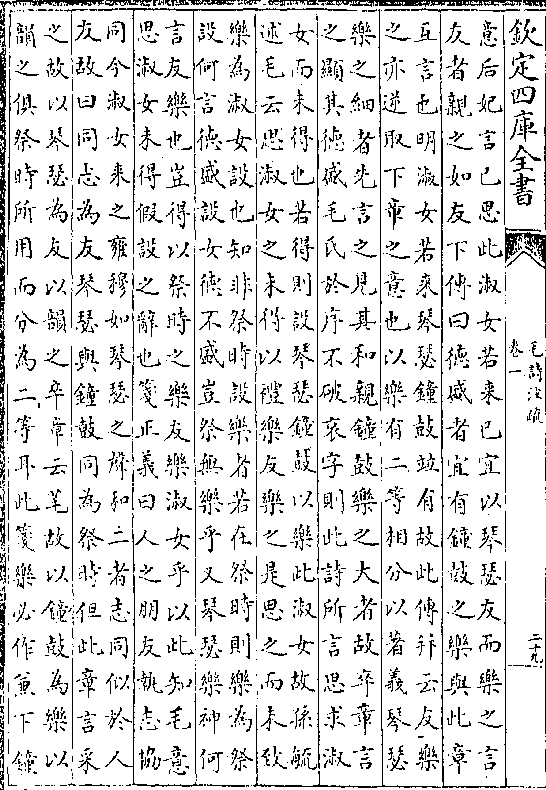 欽定四庫全書
毛詩注疏
卷一
二十九
意后妃言已思此淑女若來已宜以琴瑟友而樂之言
友者親之如友下傳曰德盛者宜有鍾鼓之樂與此章
互言也明淑女若來琴瑟鐘鼓竝有故此傳并云友樂
之亦逆取下章之意也以樂有二等相分以著義琴瑟
樂之細者先言之見其和親鐘鼓樂之大者故卒章言
之顯其德盛毛氏於序不破哀字則此詩所言思求淑
女而未得也若得則設琴瑟鐘鼓以樂此淑女故孫毓
述毛云思淑女之未得以禮樂友樂之是思之而未致
樂為淑女設也知非祭時設樂者若在祭時則樂為祭
設何言德盛設女德不盛豈祭無樂乎又琴瑟樂神何
言友樂也豈得以祭時之樂友樂淑女乎以此知毛意
思淑女未得假設之辭也箋正義曰人之朋友執志協
同今淑女來之雍穆如琴瑟之聲和二者志同似於人
友故曰同志為友琴瑟與鐘鼓同為祭時但此章言采
之故以琴瑟為友以韻之卒章云芼故以鐘鼓為樂以
韻之俱祭時所用而分為二等耳此箋樂必作兼下鐘